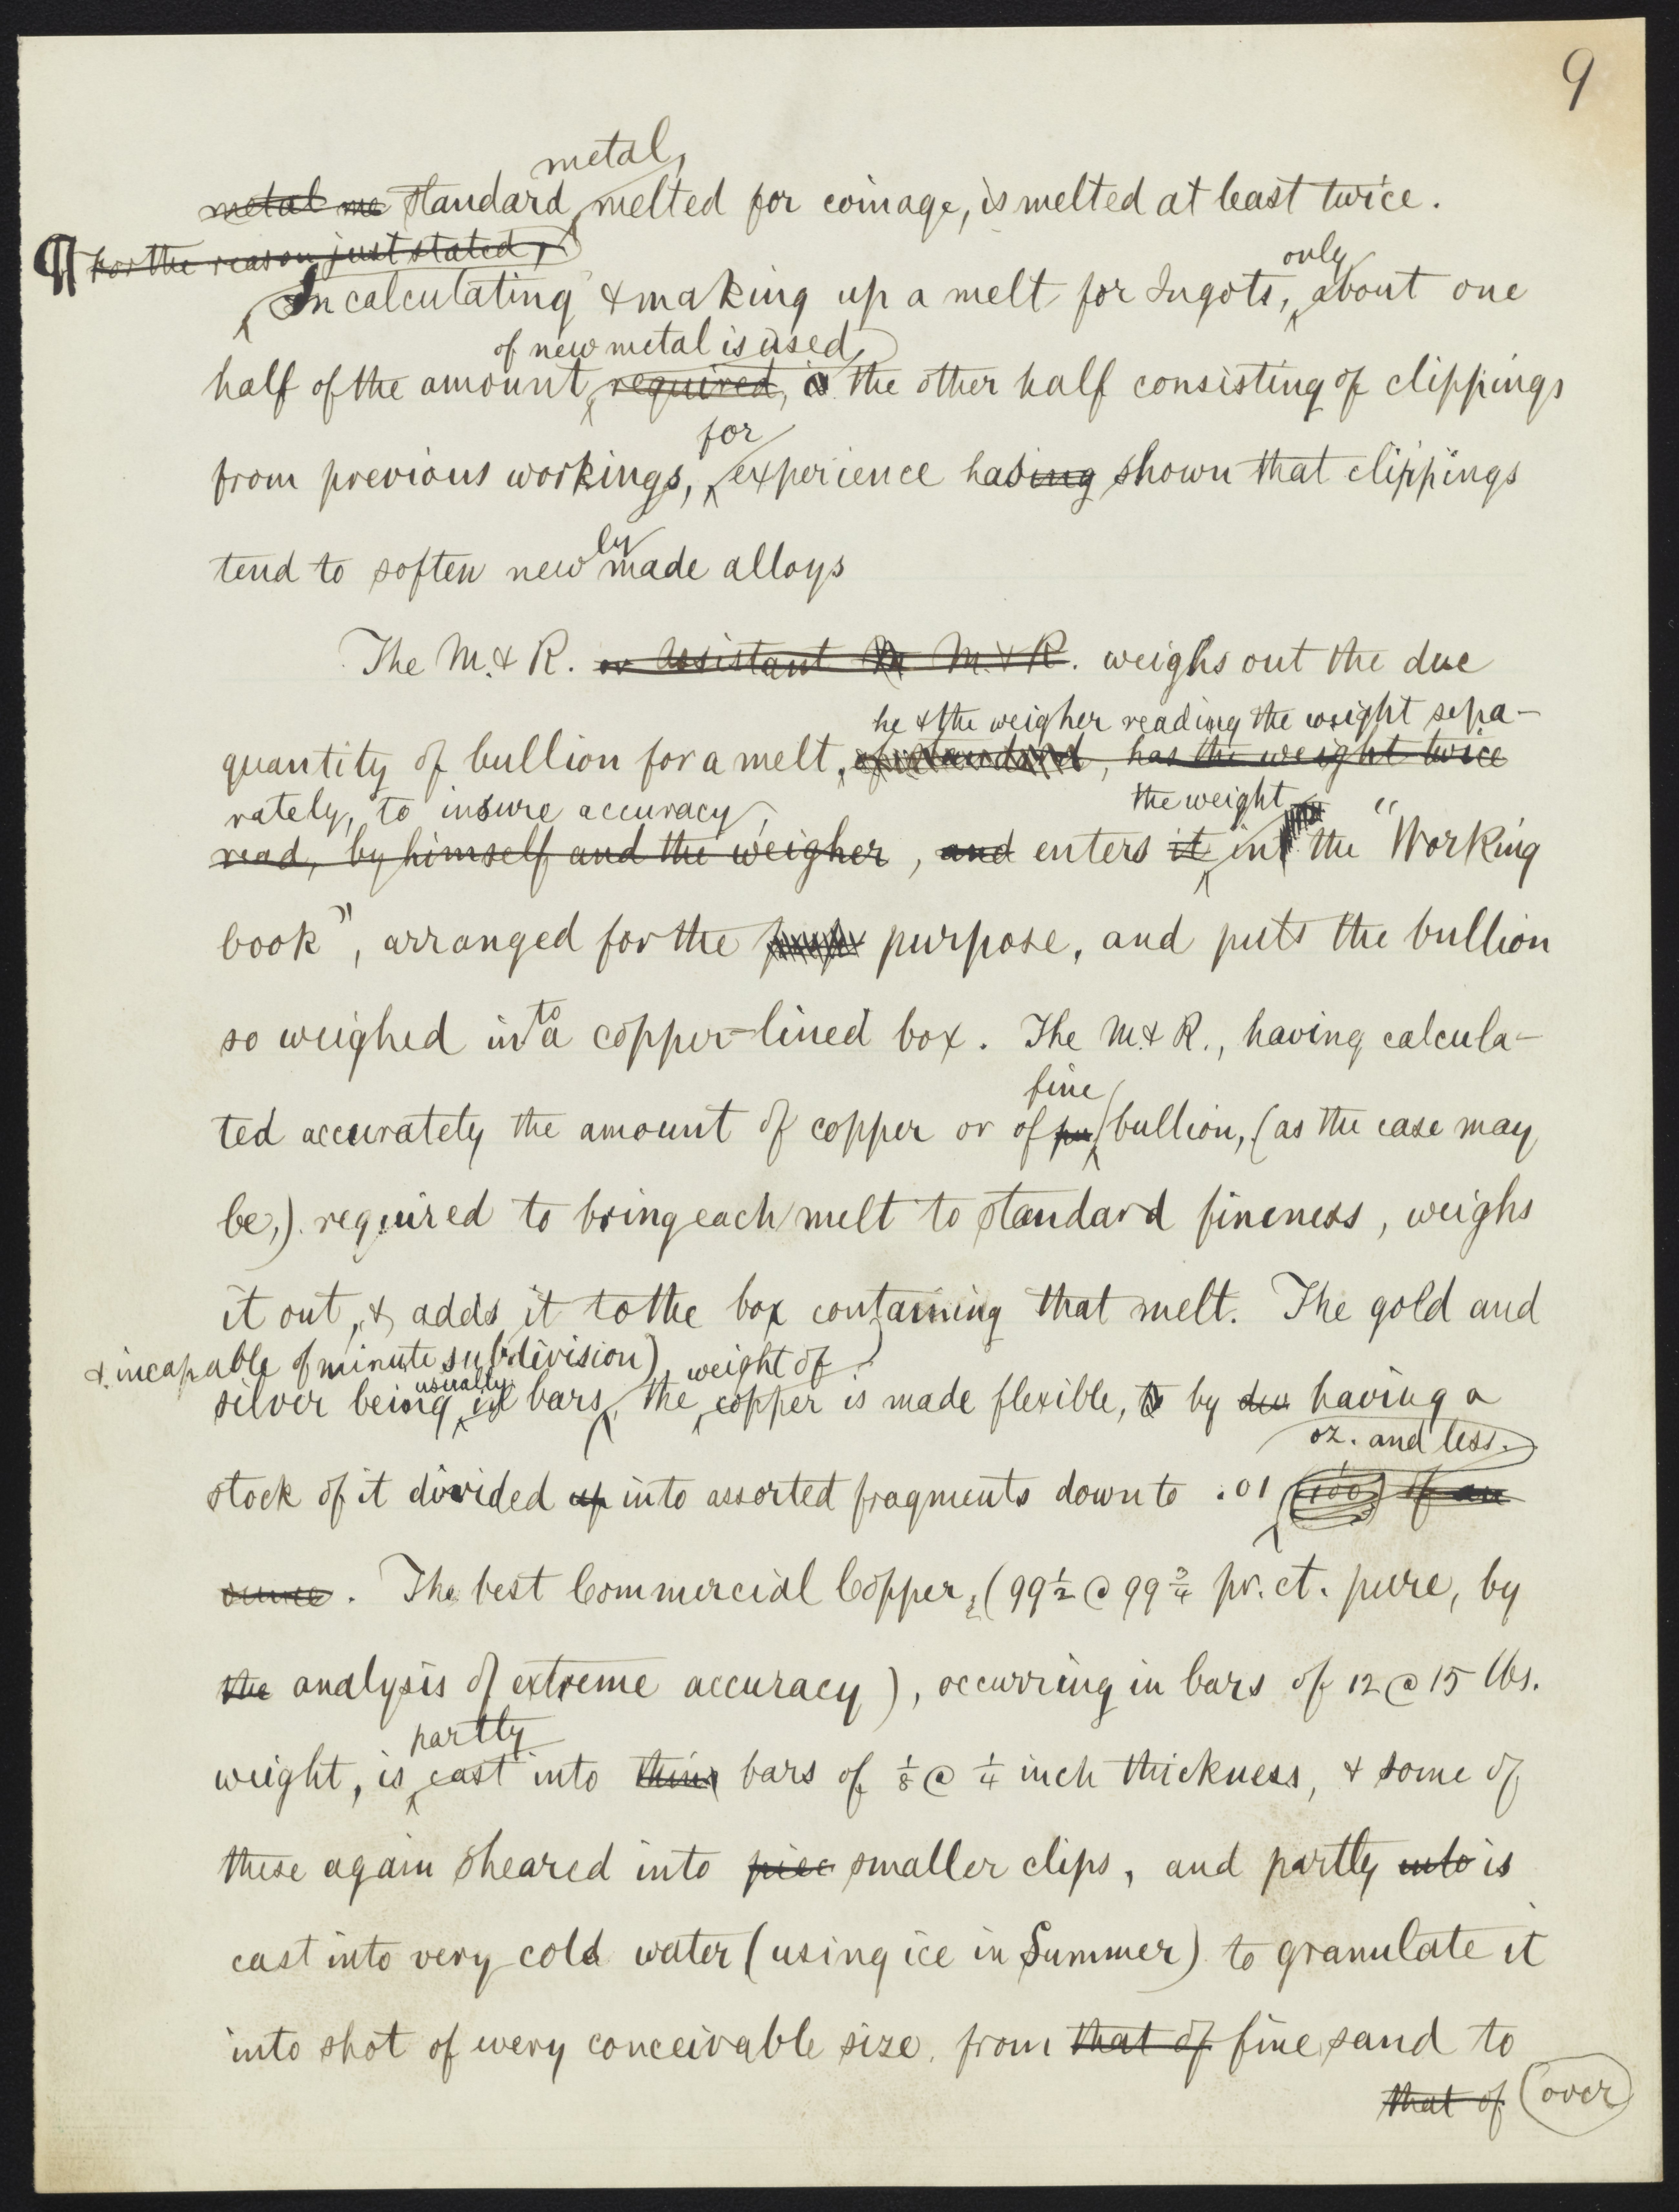 9
metal,
metal me standard melted for coinage, is melted at least twice.
¶ for the reason just stated,
only
In calculating & making up a melt for Ingots, about one
of new metal is used,
half of the amount required, the other half consisting of clippings
for
from previous workings, experience having shown that clippings
ly
tend to soften new made alloys
The M. & R. or assistant M. & R. weighs out the due
he & the weigher reading the weight sepa-
quantity of bullion for a melt, of standard, has the weight twice
rately, to insure accuracy,
the weight "
read, by himself and the weigher, and enters it in the Working
book", arranged for the purpose, and puts the bullion
to
so weighed in a copper-lined box. The M. & R., having calcula-
fine
ted accurately the amount of copper or of pu bullion, (as the case may
be,) required to bring each melt to standard fineness, weighs
it out, & adds it to the box containing that melt. The gold and
& incapable of minute subdivision) weight of
usually
silver being in bars, the copper is made flexible, by having a
oz. and less.
stock of it divided up into assorted fragments down to .01 1/100 of an
ounce. The best Commercial Copper, (99 1/2 @ 99 3/4 pr. ct. pure, by
the analysis of extreme accuracy), occurring in bars of 12 @ 15 lbs.
partly
weight, is cast into thin bars of 1/8 @ 1/4 inch thickness, & some of
these again sheared into piec smaller clips, and partly into is
cast into very cold water (using ice in Summer) to granulate it
into shot of every conceivable size, from that of fine sand to
that of (over)